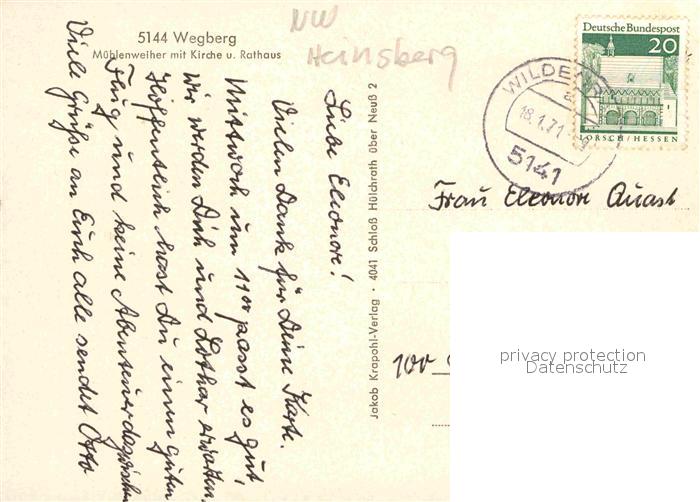 5144 Wegberg
Mühlenweiher mit Kirche u. Rathaus
NW
Heinsberg
Liebe Eleonore!
Vielen Dank für Deine Karte.
Mittwoch um 11⁰⁰ passt es gut,
wir werden Dich und Lothar erwarten,
Hoffentlich hast Du einen guten
Flug und keine Abenteuer dazwischen
Viele Grüße an Euch alle sendet Otto
Jakob Krapohl-Verlag · 4041 Schloß Hülchrath über Neuß 2
Deutsche Bundespost
20
LORSCH/HESSEN
18.1.71
5141
Frau Eleonore Quast
100
privacy protection
Datenschutz